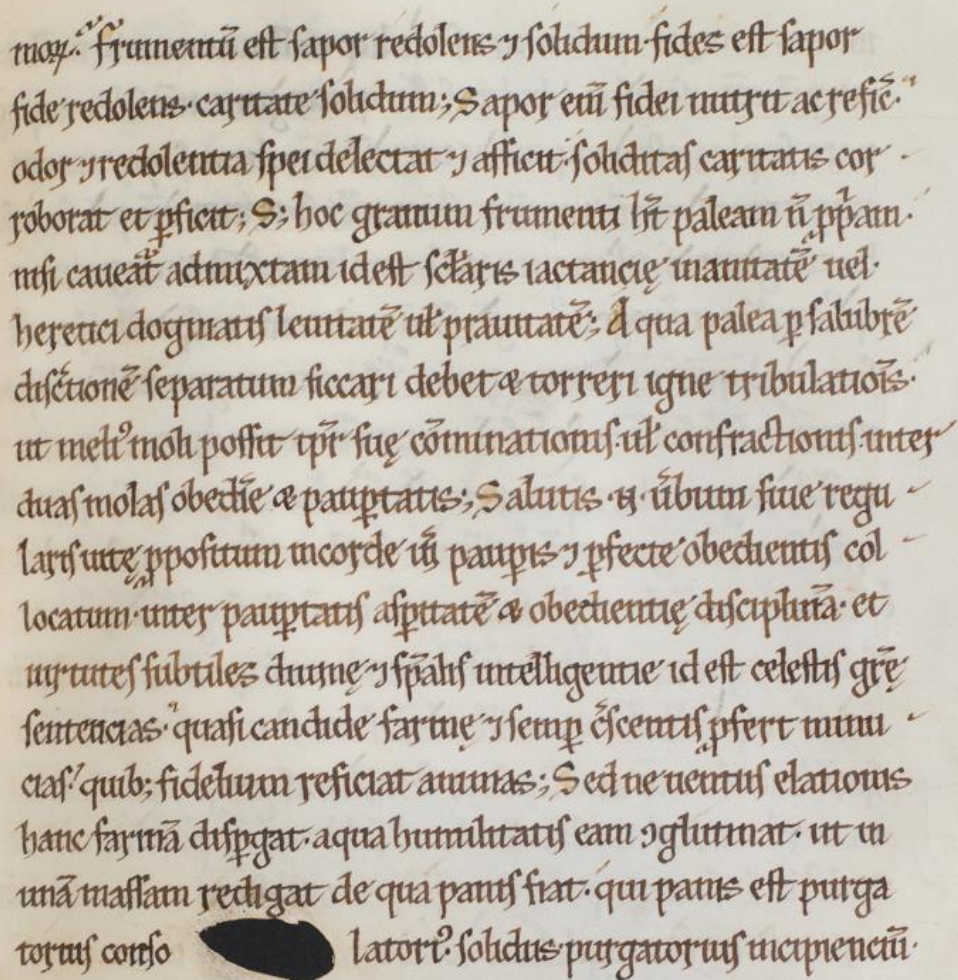 moꝝ. frumentū est sapor redolens ⁊ solidum. fides est sapor
fide redolens. caritate solidum; Sapor eni̅ fidei nutrit ac refic̅.
odor ⁊ redolentia spei delectat ⁊ afficit. soliditas caritatis cor
roborat et ꝑficit; S; hoc granum frumenti ht̅ paleam n̅ pp̅am.
nisi caueat admixtam id est scłaris iactancię inanitatē uel.
heretici dogmatis leuitatē uł prauitatē; A qua palea ꝑ salubrē
discͥtionē separatum siccari debet & torreri igne tribulatiois̅.
ut meliꝰ moli possit tp̅r suę cōminationis. uł confractionis. inter
duas molas obedie̅ & pauꝑtatis; Salutis .n. u̅bum siue regu
laris uitę ꝓpositum in corde uiͥ pauꝑis ⁊ ꝑfecte obedientis col
locatum. inter pauꝑtatis asꝑitatē & obedientię disciplinā. et
uirtutes subtiles diuinę ⁊ sp̅alis intelligentie id est celestis gr̅ę
sentencias. quasi candide farinę ⁊ semꝑ c̅scentis ꝓfert minu
cias. quib; fidelium reficiat animas; Sed ne uentus elationis
hanc farinā disꝑgat. aqua humilitatis eam ↄglutinat. ut in
unā massam redigat de qua panis fiat. qui panis est purga
torius conso latoriꝰ. solidus. purgatorius incipienciū.